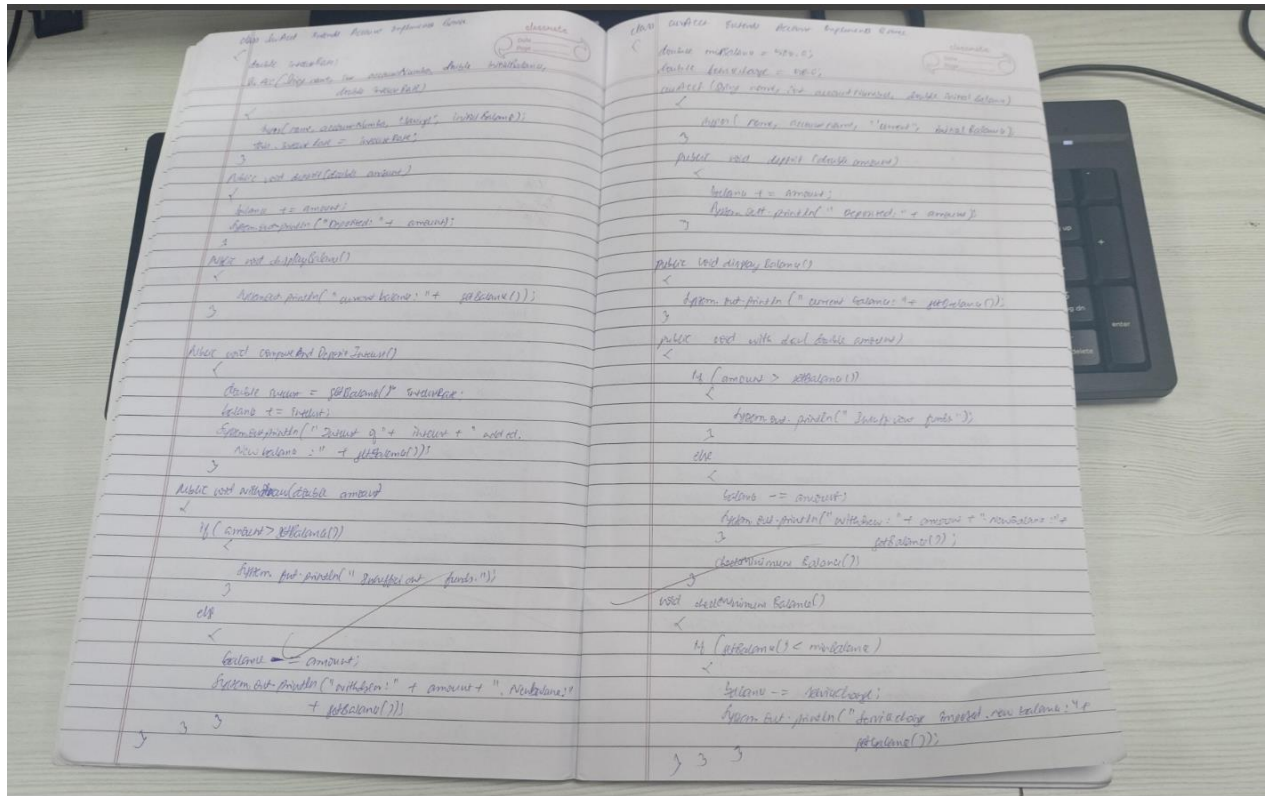 class SavAcct Extends Account Implements Bank
classmate
Date
Page
{
double interestRate;
SavAcct (String name, int accountNumber, double initialBalance,
double interestRate)
{
super(name, accountNumber, "Savings", initialBalance);
this.interestRate = interestRate;
}
Public void deposit(double amount)
{
balance += amount;
System.out.println("Deposited: "+ amount);
}
Public void displayBalance()
{
System.out.println("current balance: "+ getBalance());
}
Public void computeAndDepositInterest()
{
double interest = getBalance()* interestRate;
balance += interest;
System.out.println("Interest of "+ interest + " added.
New balance :" + getBalance());
}
Public void withdraw(double amount)
{
if( amount> getBalance())
{
System.out.println(" Insufficient funds.");
}
else
{
balance -= amount;
System.out.println("withdrew:" + amount + ". New balance:"
+ getBalance());
} } }
class CurrAcct Extends Account Implements Bank
classmate
Date
Page
{
double minBalance =
double serviceCharge =
CurrAcct (String name, int accountNumber, double initialBalance)
{
super( name, accountname, "current", initialBalance)
}
public void deposit (double amount)
{
balance += Amount;
System.out.println(" Deposited:"+ amount)
}
public void display Balance()
{
System.out.println (" current balance:"+ getBalance());
}
public void with double amount)
{
if ( amount > getBalance())
{
System.out.println(" funds");
}
else
{
balance -= amount;
System.out.println("withdrew:"+ amount +". newBalance:"+
} getBalance());
checkMinimum Balance()
}
void checkMinimum Balance()
{
if (getBalance() < minBalance)
{
balance -= serviceCharge;
System.out.println("service charge imposed.new balance:"+
getBalance());
} } }
up
+
pg dn
enter
delete